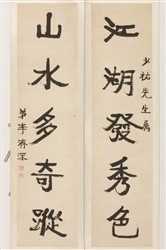 江湖發秀色
少祐先生屬
山水多奇蹤
弟李壽深